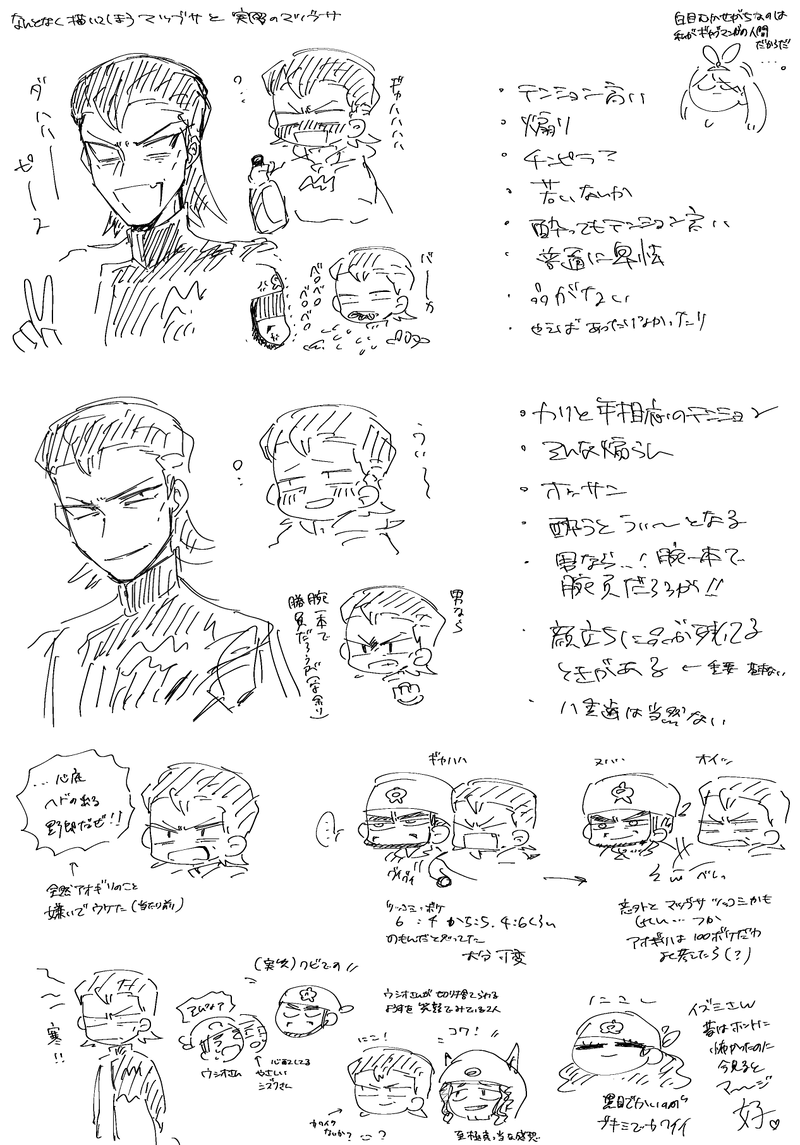 なんとなく描いてしまうマツブサと実際のマツブサ
白目むかせがちなのは
私がギャグマンガの人間
だからだ
ダハハー
ピース
ギャハハハハ
バーカ
ベロベロベロ
・テンション高い
・煽り
・チンピラ?
・若いなんか
・酔ってもテンション高い
・普通に卑怯
・品がない
・やえばあったりなかったり
・わりと年相応のテンション
・そんな煽らん
・オッサン
・酔うとうぃ〜となる
・男なら…!腕一本で
腕負だろうが!!
・顔立ちに品が残ってる
ときがある ← 重要
・八重歯は当然ない
うぃ〜
男なら
腕一本で
勝負だろうが(字余り)
…心底
ヘドの出る
野郎だぜ!!
↑
全然アオギリのこと
嫌いでウケた(当たり前)
ギャハハ
ヌハハ
オイッ
ツッコミ:ボケ
6:4から5:5、4:6くらい
のもんだと思ってた
大分可変
意外とマツブサツッコミかも
しれん…つか
アオギリは100ボケだわ
よく考えたら(?)
寒!!
(実父)クビでの
ウシオさん
心配してる
やさしい
シズクさん
ウシオさんが切り捨てられる
ニコ!
コワ!
至極真っ当な感想
ニコ…
イズミさん
昔はホントに
怖かったのに
今見ると
マージ
好♡
黒目でかいのが
ブキミでカワイイ